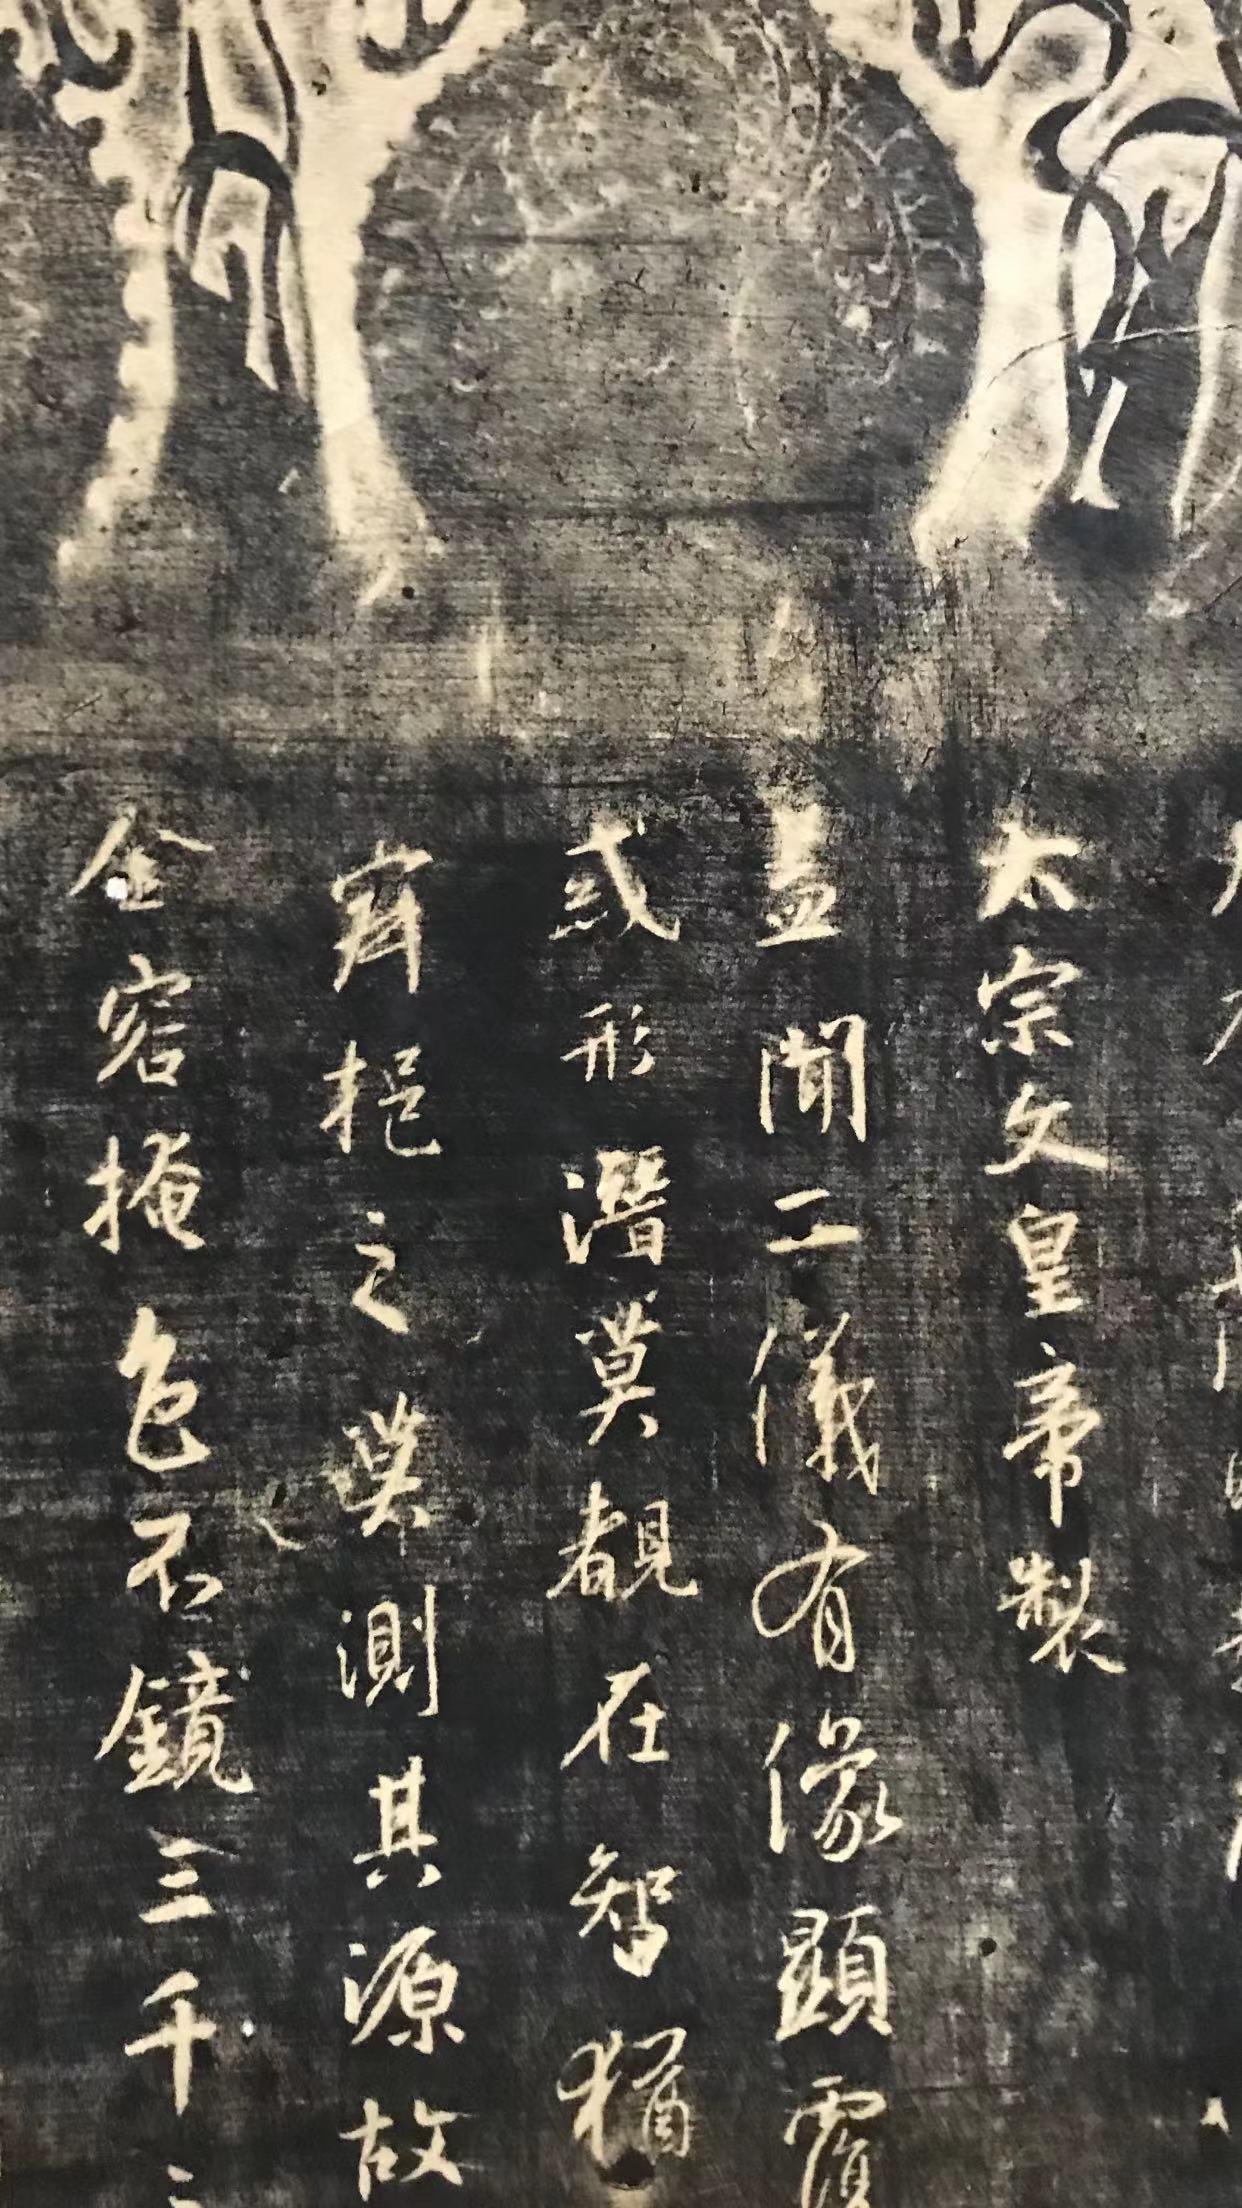 太宗文皇帝製
盖聞二儀有像顯覆
惑形潛莫覩在智猶
寂挹之莫測其源故
金容掩色不鏡三千之